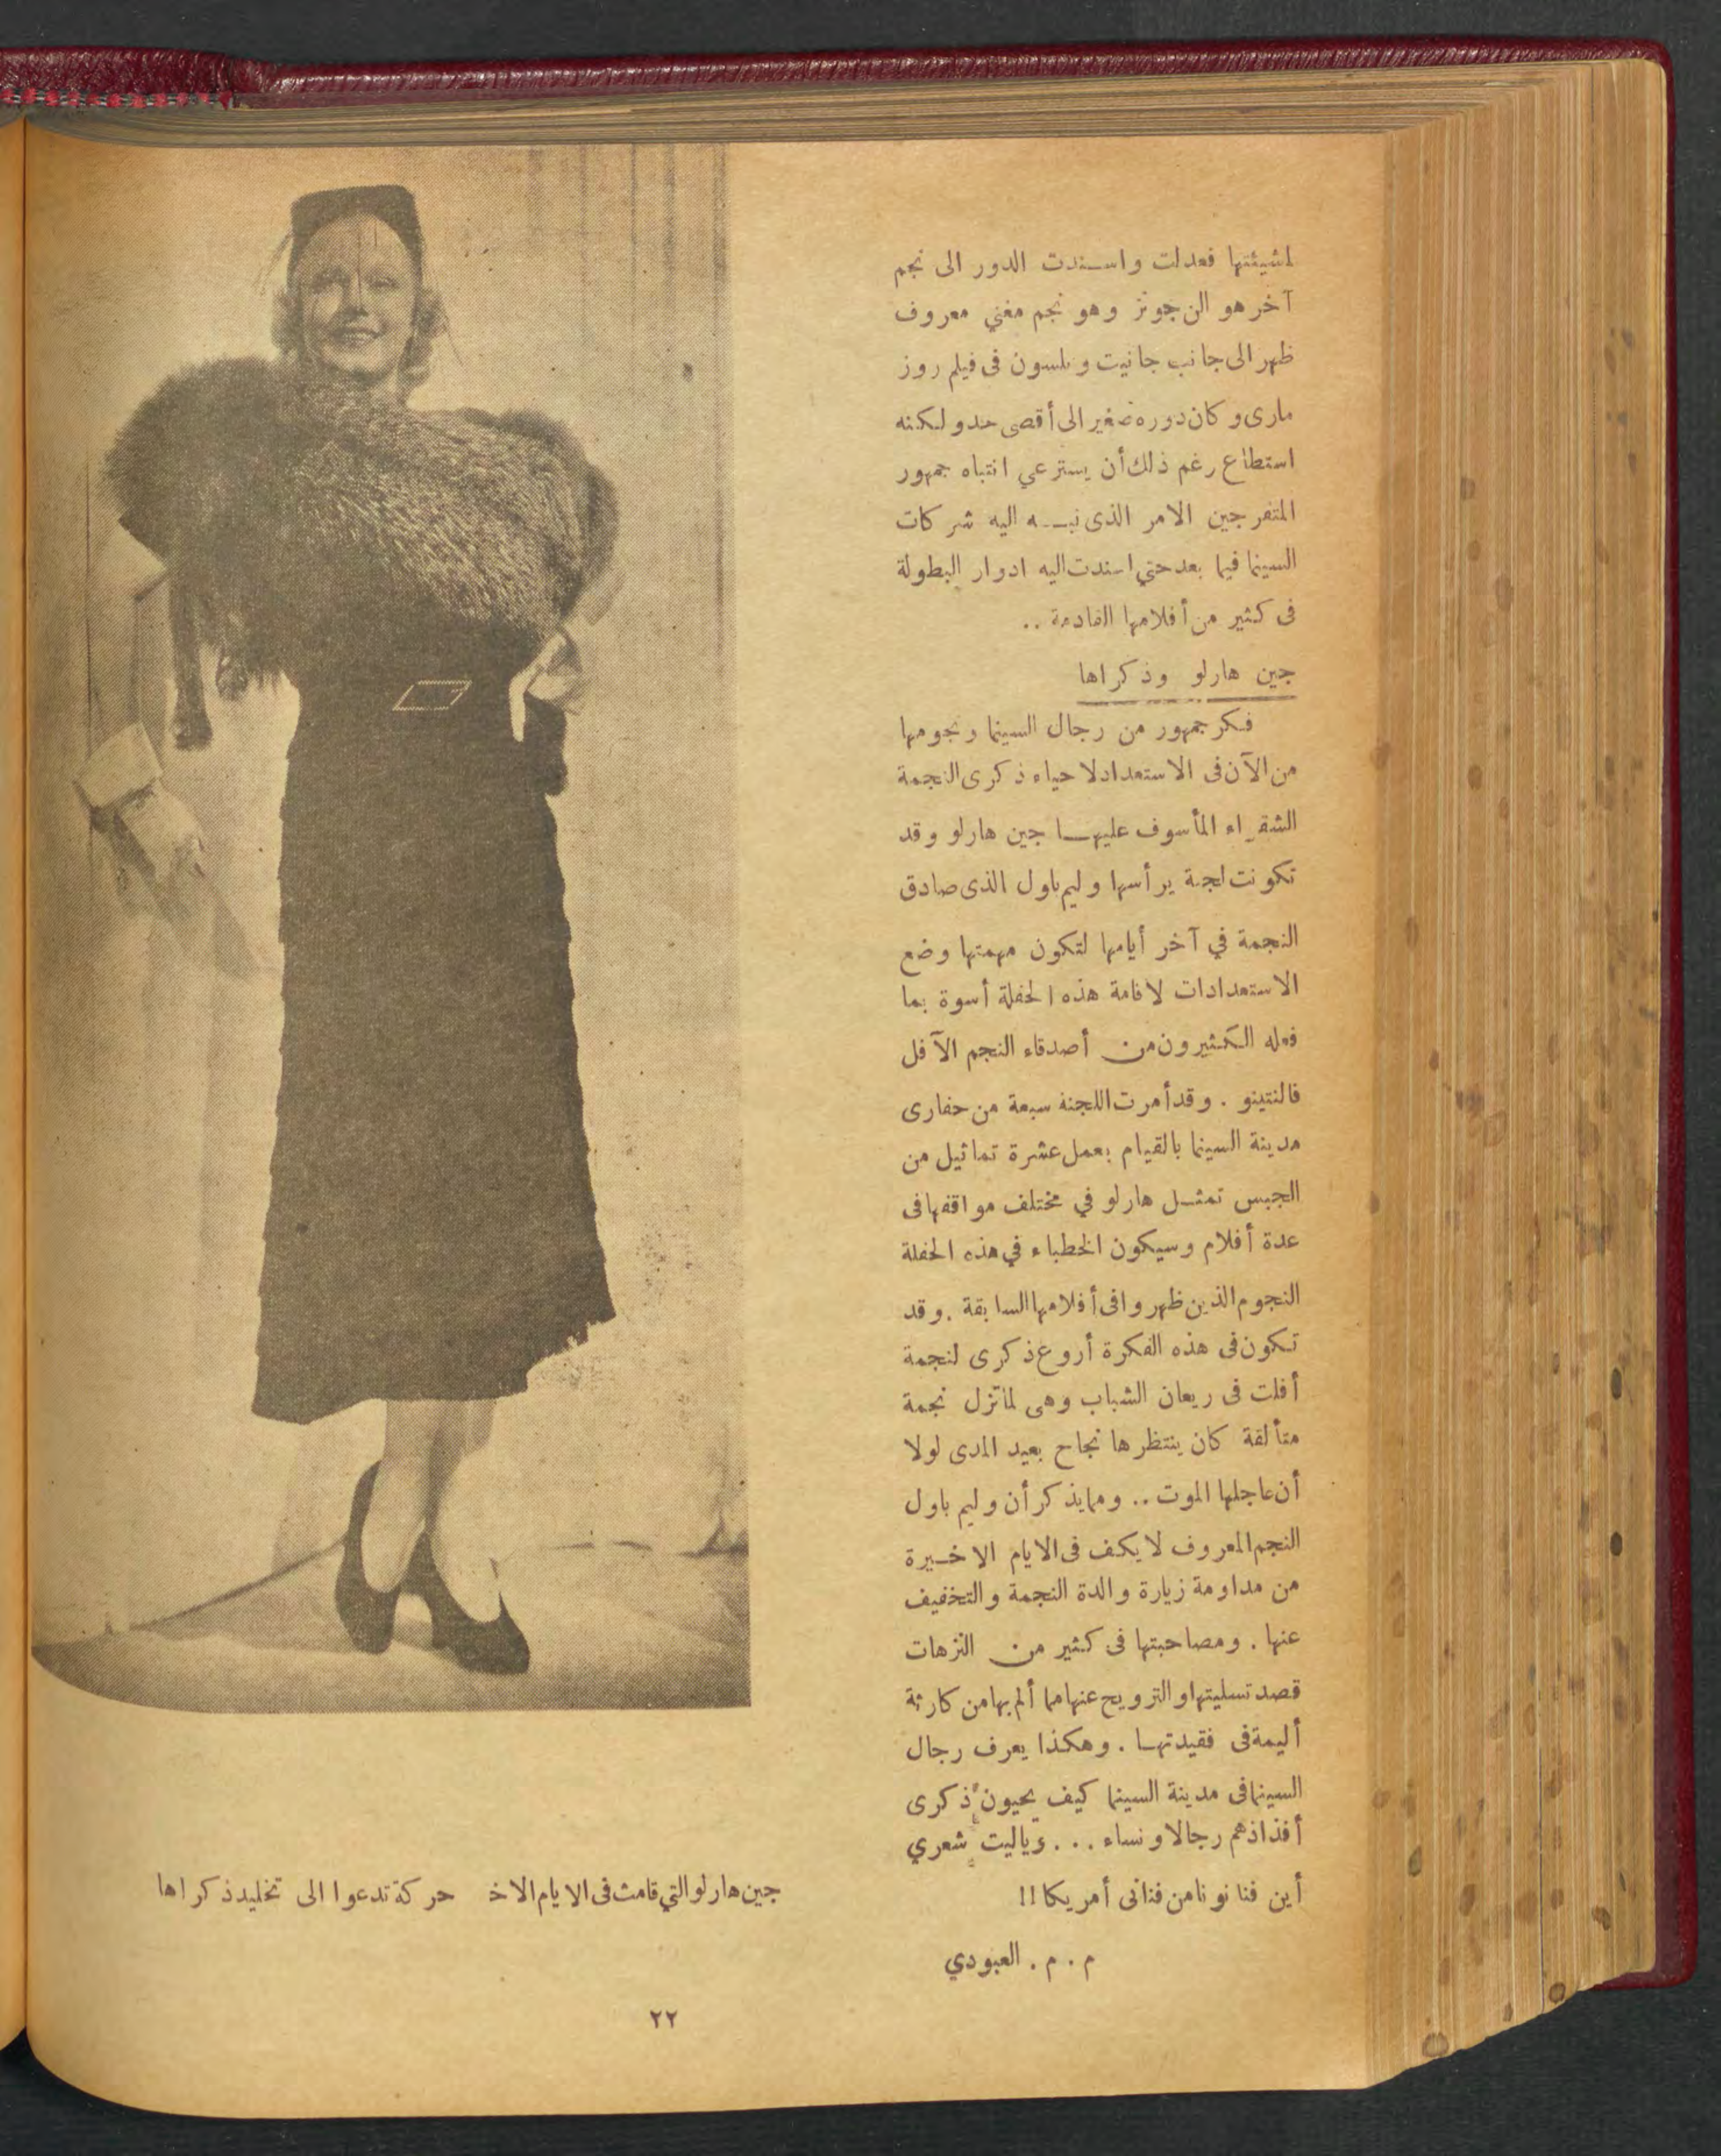 لمشيئتها فعدلت واسندت الدور الى نجم
آخر هو الن جونز وهو نجم مغني معروف
ظهر الى جانب جانيت ويلسون فى فيلم روز
مارى وكان دوره صغير الى أقصى حد ولكنه
استطاع رغم ذلك أن يسترعي انتباه جمهور
المتفرجين الامر الذى نبه اليه شركات
السينما فيما بعد حتي اسندت اليه ادوار البطولة
فى كثير من أفلامها القادمة ..
جين هارلو وذكراها
فكر جمهور من رجال السينما ونجومها
من الآن فى الاستعداد لاحياء ذكرى النجمة
الشقراء المأسوف عليها جين هارلو وقد
تكونت لجنة يرأسها وليم باول الذى صادق
النجمة في آخر أيامها لتكون مهمتها وضع
الاستعدادات لاقامة هذه الحفلة أسوة بما
فعله الكثيرون من أصدقاء النجم الآفل
فالنتينو . وقد أمرت اللجنة سبعة من حفارى
مدينة السينما بالقيام بعمل عشرة تماثيل من
الجبس تمثل هارلو في مختلف مواقفها فى
عدة أفلام وسيكون الخطباء في هذه الحفلة
النجوم الذين ظهروا فى أفلامها السابقة . وقد
تكون فى هذه الفكرة أروع ذكرى لنجمة
أفلت فى ريعان الشباب وهى لما تزل نجمة
متألقة كان ينتظرها نجاح بعيد المدى لولا
أن عاجلها الموت .. ومما يذكر أن وليم باول
النجم المعروف لا يكف فى الايام الاخيرة
من مداومة زيارة والدة النجمة والتخفيف
عنها . ومصاحبتها فى كثير من النزهات
قصد تسليتها والترويح عنها مما ألم بها من كارثة
أليمة فى فقيدتها . وهكذا يعرف رجال
السينما فى مدينة السينما كيف يحيون ذكرى
أفذاذهم رجالا ونساء ... وياليت شعري
أين فنانونا من فنانى أمريكا !!
م . م . العبودي
جين هارلو التي قامت فى الايام الاخ حركة تدعوا الى تخليد ذكراها
٢٢